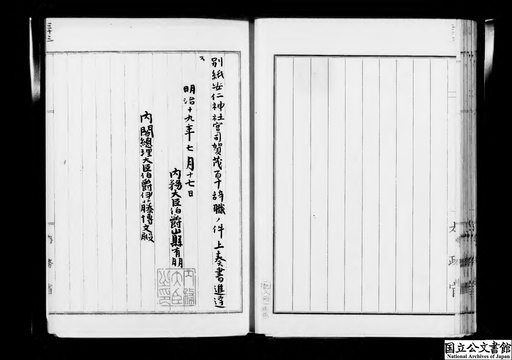 別紙安仁神社宮司賀茂百十辞職ノ件上奏書進達
ス
明治十九年七月十七日
内務大臣伯爵山縣有朋
内閣總理大臣伯爵伊藤博文殿
太政官
国立公文書館
National Archives of Japan